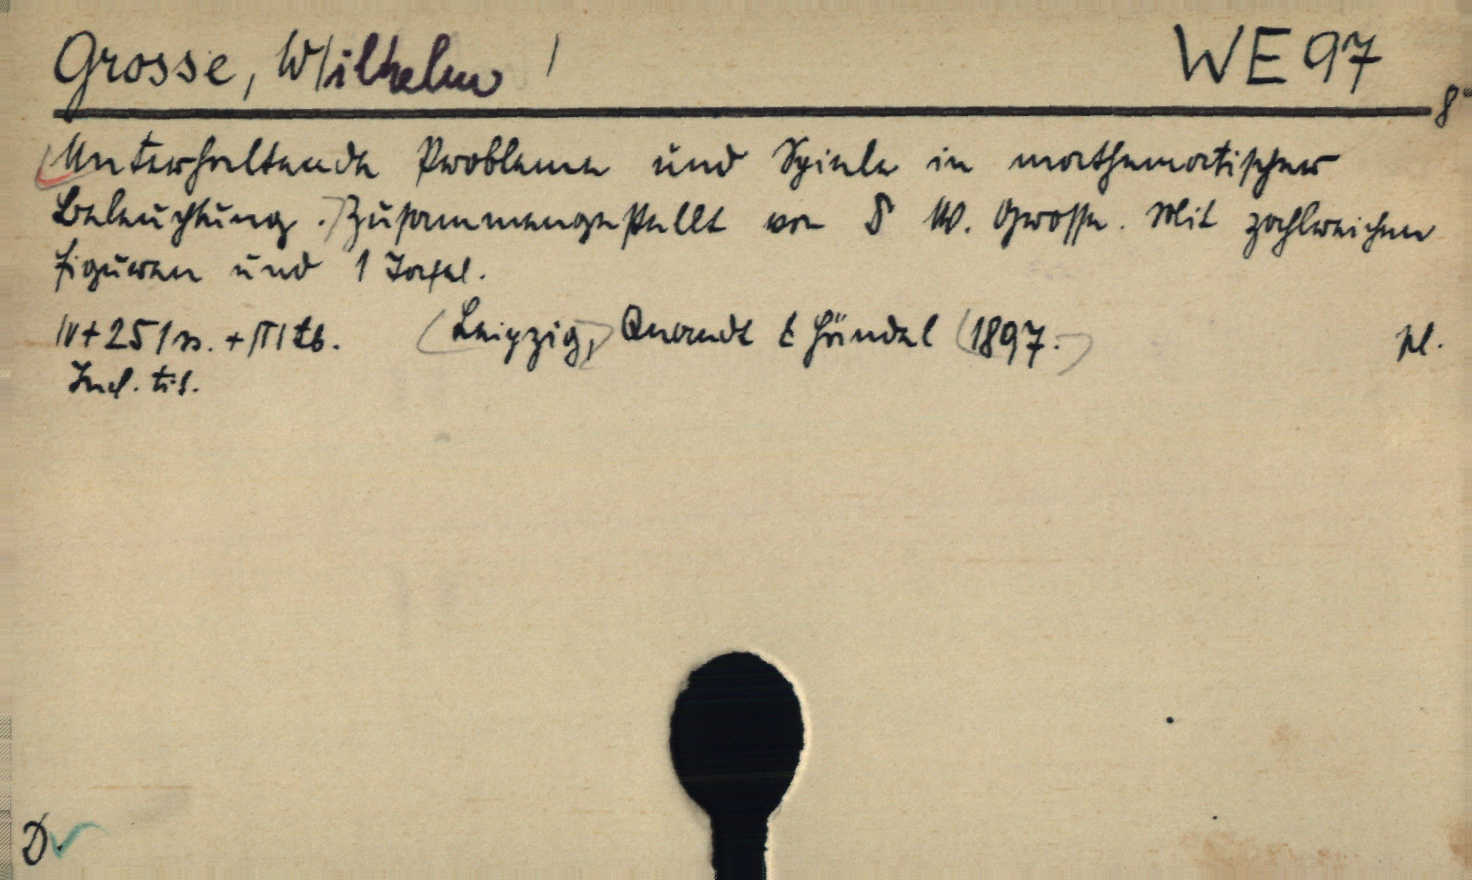 Grosse, Wilhelm WE 97
8°
Unterhaltende Probleme und Spiele in mathematischer
Beleuchtung. Zusammengestellt von W. Grosse. Mit zahlreichen
Figuren und 1 Tafel.
IV+251 s. + III tb. (Leipzig, Quandt & Händel (1897.) pl.
Incl. tit.
D